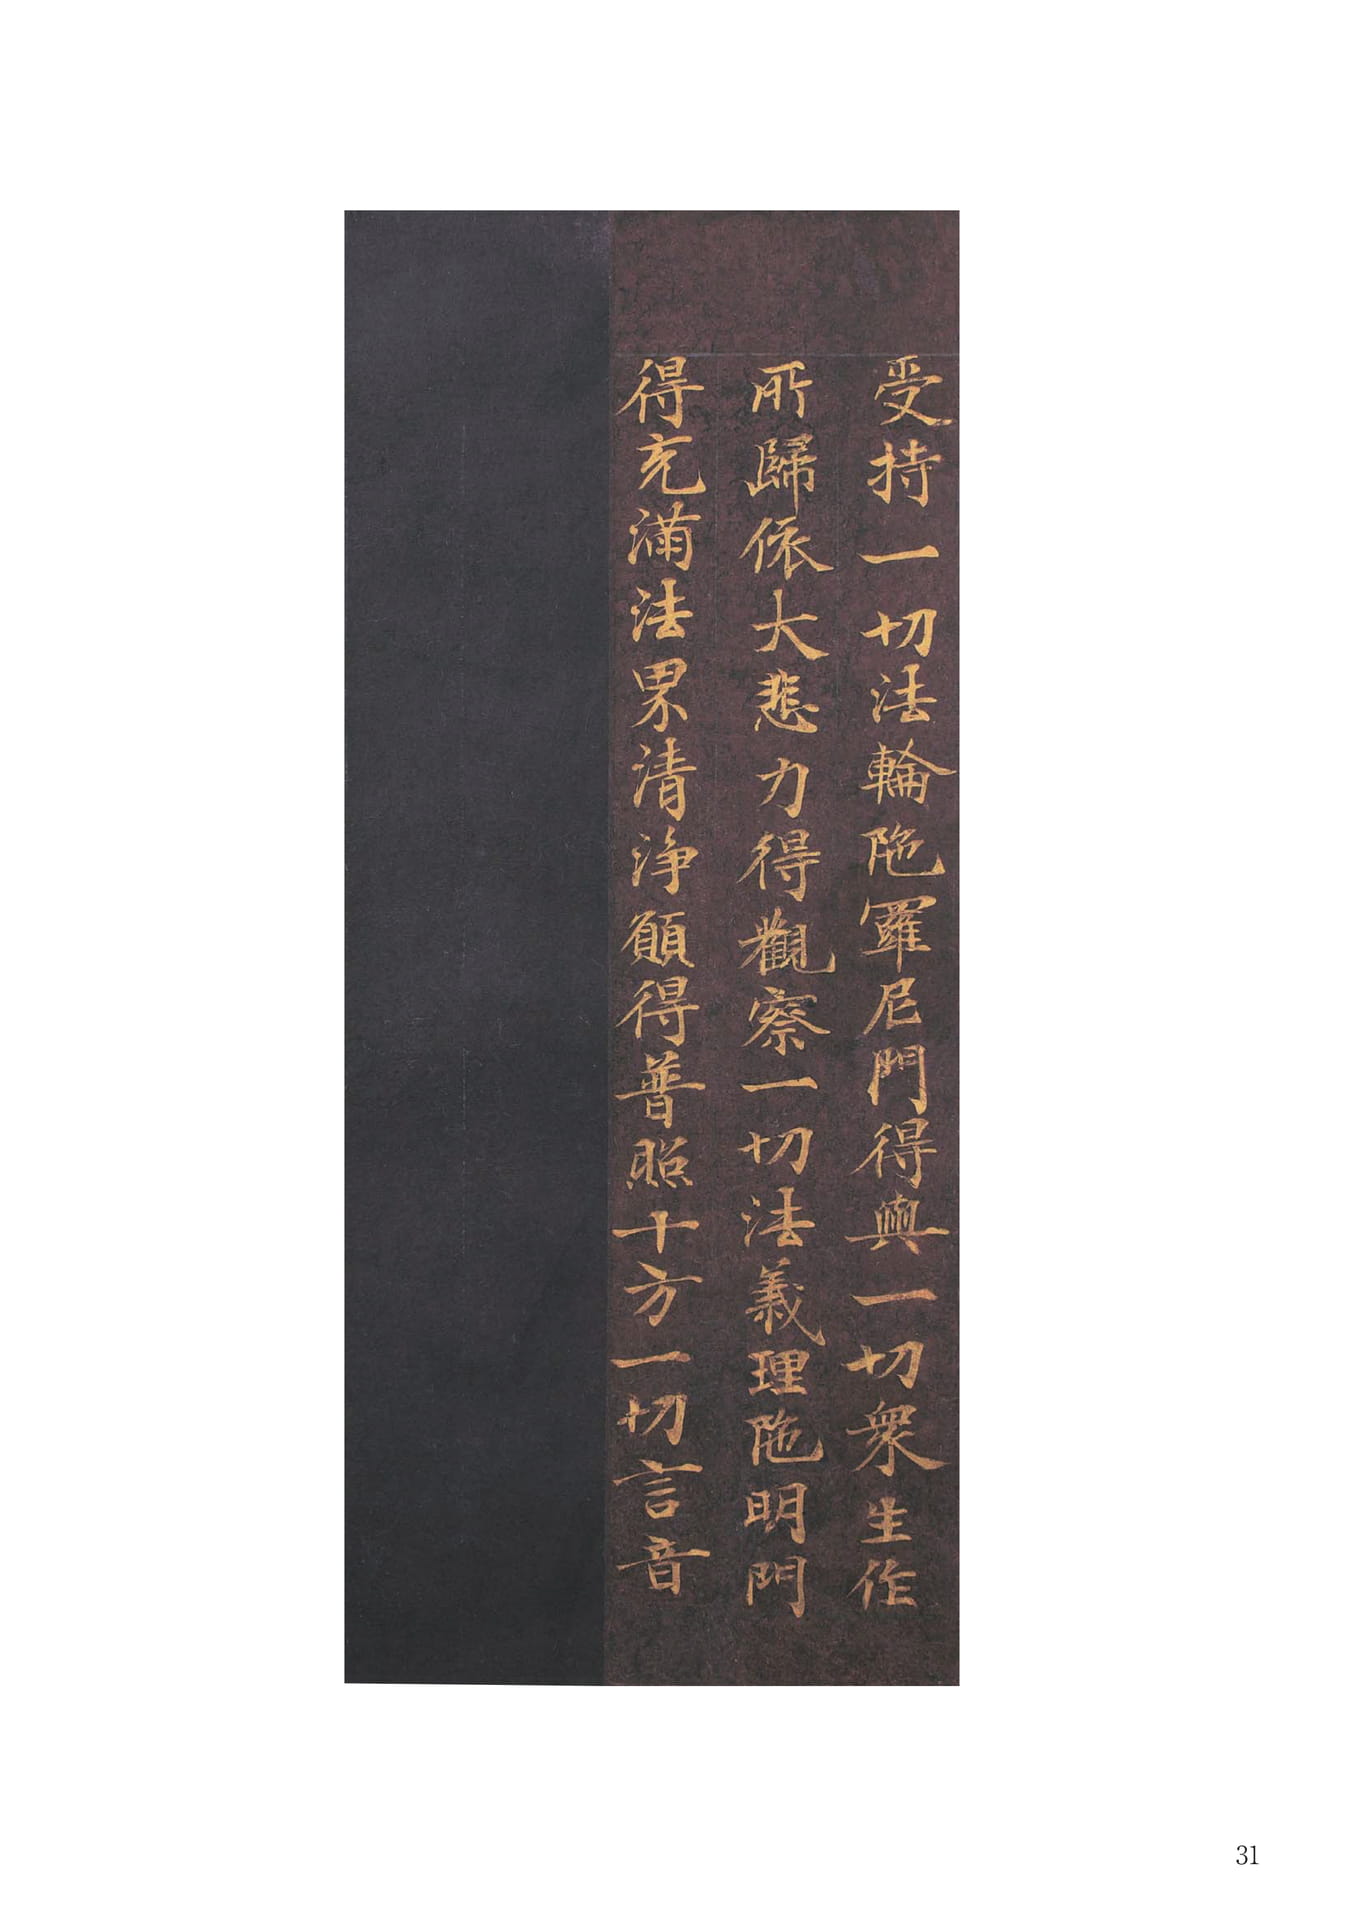 受持一切法輪陁羅尼門得與一切衆生作
所歸依大悲力得觀察一切法義理陁明門
得充滿法界清淨願得普照十方一切言音
31